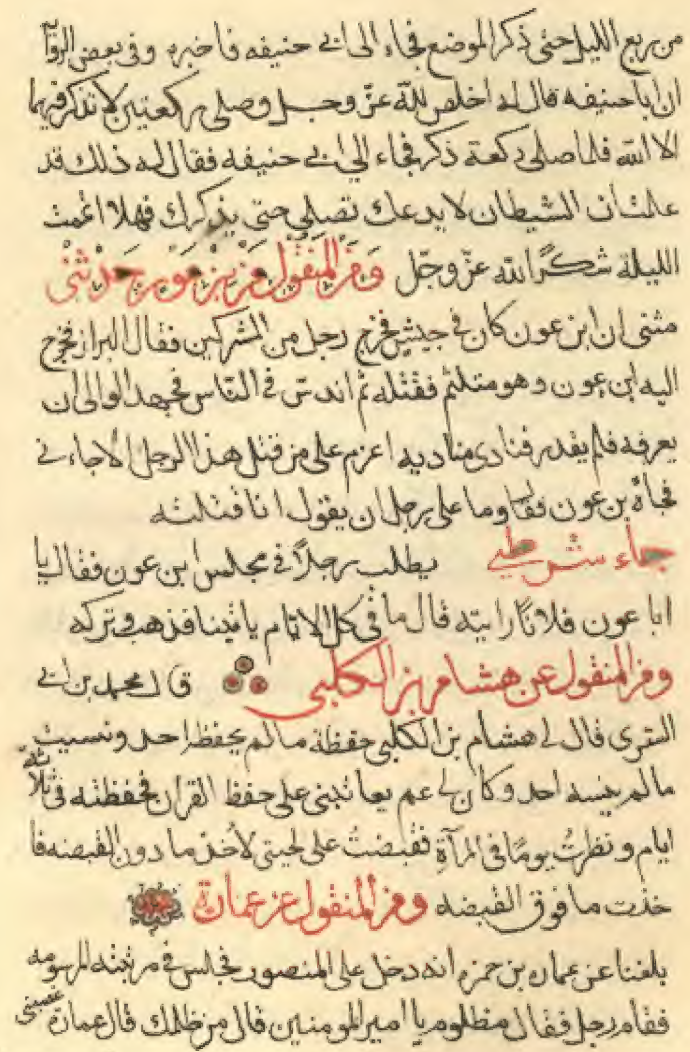 من ربع الليل حتى ذكر الموضع فجاء الى ابى حنيفه فاخبره وفى بعض الروآ
ان ابا حنيفه قال له اخلص لله عزّ وجل وصلى ركعتين لا تذكر فيهما
الا الله فلما صلى ركعة ذكر فجاء الى ابى حنيفه فقال له ذلك قد
علمت ان الشيطان لا يدعك تصلى حتى يذكرك فهلا اتممت
الليلة شكرًا لله عزّ وجّل ومن المنقول عن بن عون حدثنى
مثنى ان ابن عون كان فى جيش فخرج رجل من المشركين فقال البراز فخرج
اليه ابن عون وهو متلثم فقتله ثم اندسّ فى النّاس فجهد الوالى ان
يعرفه فلم يقدر فنادى مناديه اعزم على من قتل هذا الرجل الا جاءنى
فجاه بن عون وقال وما على رجل ان يقول انا قتلته
جاء شرطى يطلب رجلاً فى مجلس ابن عون فقال يا
ابا عون فلانًا رايته قال ما فى كل الايام ياتينا فذهب وتركه
ومن المنقول عن هشام بن الكلبى قال محمد بن ابى
السّرى قال لى هشام بن الكلبى حفظة ما لم يحفظ احد ونسيت
ما لم ينسه احد وكان لى عم يعاتبنى على حفظ القران فحفظته فى ثلاثة
ايام ونظرتُ يومًا فى المرآةِ فقبضتُ على لحيتى لأخذ ما دون القبضه فا
خذت ما فوق القبضه ومن المنقول عن عمارة
بلغنا عن عماره بن حمزه انه دخل على المنصور فجلس فى مرتبته المرسومه
فقام رجل فقال مظلوم يا امير المومنين قال من ظلمك قال عمارة غصبنى